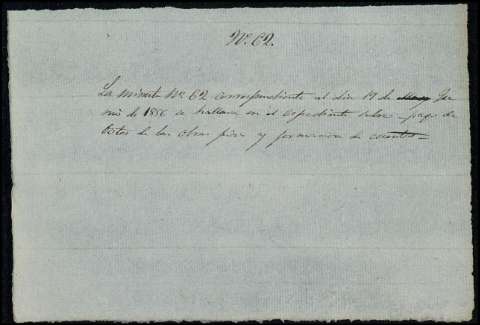 Nº. 62.
La minuta Nº. 62 correspondiente al dia 19 de Ju-
nio de 1856 se hallara en el expediente sobre pago de
de las obras pias y formacion de cuentas =